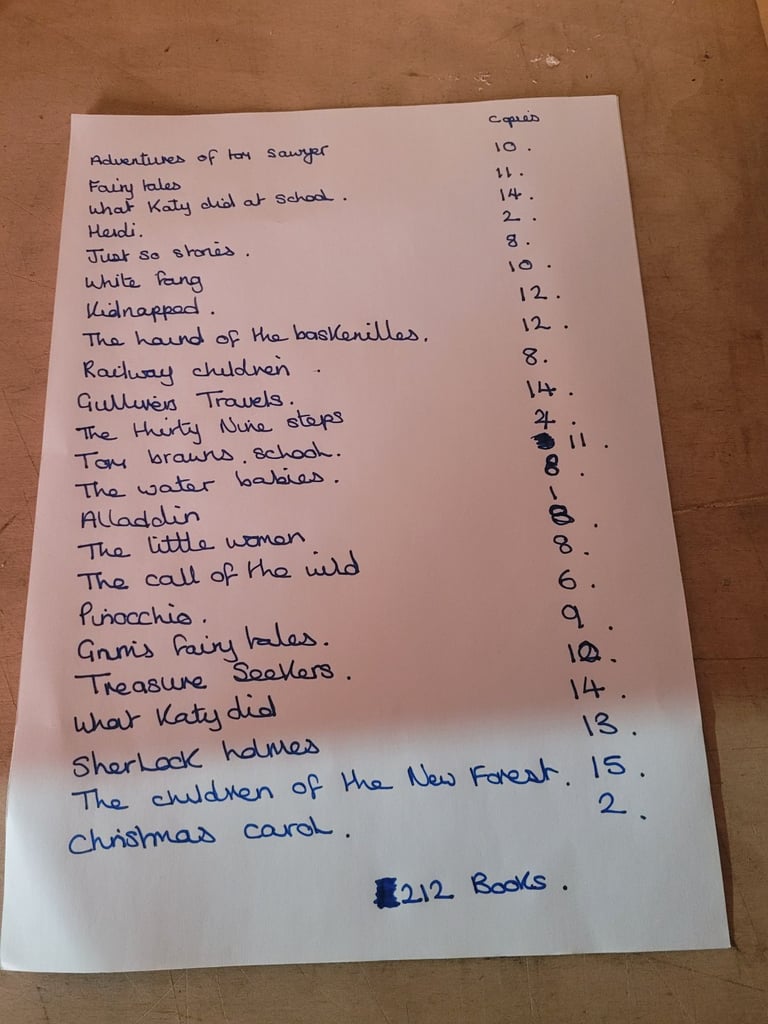 Copies
Adventures of tom sawyer 10.
Fairy tales 11.
What Katy did at school. 14.
Heidi. 2.
Just so stories. 8.
White fang 10.
Kidnapped. 12.
The hound of the baskervilles. 12.
Railway children. 8.
Gullivers Travels. 14.
The thirty Nine steps 4.
Tom browns school. 11.
The water babies. 8.
Alladdin 1
The little women 8.
The call of the wild 8.
Pinocchio. 6.
Grims fairy tales. 9.
Treasure Seekers. 12.
What Katy did 14.
Sherlock holmes 13.
The children of the New Forest. 15.
Christmas carol. 2.
212 Books.